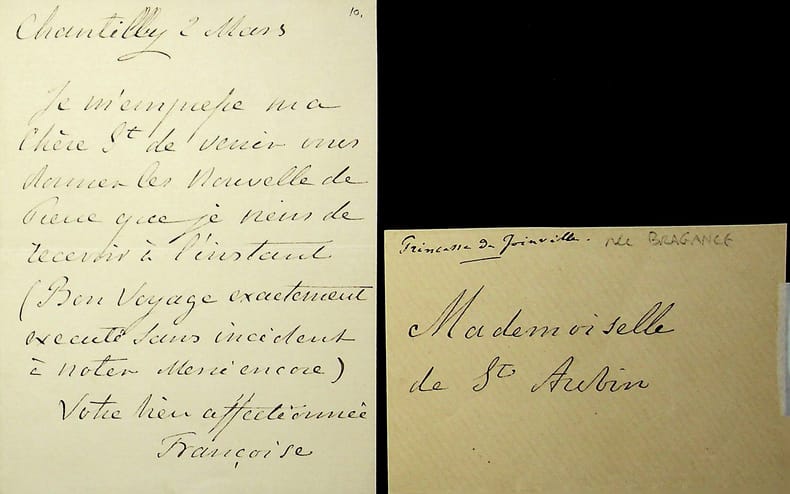 10.
Chantilly 2 Mars
Je m'empresse ma
Chère St de venir vous
donner les Nouvelle de
que je viens de
recevoir à l'instant
(Bon Voyage exactement
executé sans incident
à noter Merci encore)
Votre bien affectionnée
Françoise
Princesse de Joinville. née BRAGANCE
Mademoiselle
de St Aubin